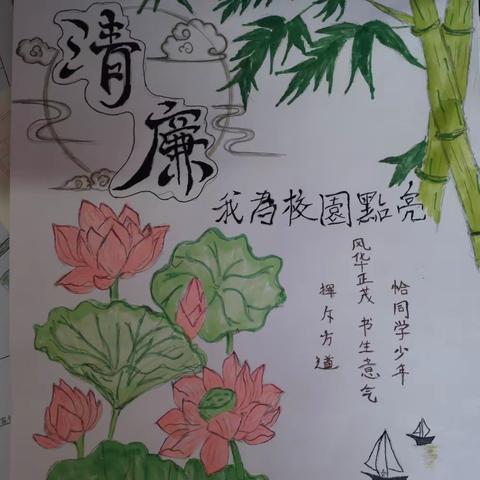 清廉
我為校園點亮
恰同学少年
风华正茂 书生意气
揮斥方遒